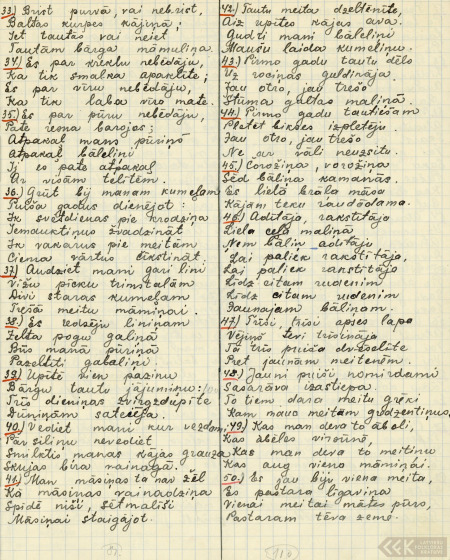 33.) Brist purvā vai nebrist,
Baltas kurpes kājiņā;
Iet tautās vai neiet
Tautām bārga māmuliņa.
34.) Es par kreklu nebēdāju,
Ka tik smalka apakšiņa;
Es par vīru nebēdāju,
Ka tik laba vīra māte.
35.) Es par pūru nebēdāju,
Pate resna barojos;
Atpakaļ mans pūriņš
Atpakaļ bāleliņi
es pate atpakaļ
Ar visām telītēm.
36.) Grūt bij manam kumeļam
gadus dienējot:
Ik svētdienas pie krodziņa
Iemauktiņus žvadzināt
Ik vakarus pie meitām
Ciema vārtus čīkstināt.
37.) Audziet mani gari lini
Vižu pieku
Divi staras kumeļam
Trešā meitu māmiņai.
38.) Es redzēju liniņam
Zelta pogu galiņā
Būs mana pūriņa
gabaliņi.
39.) Upīte vien pazina
Bārgu tautu jājumiņu:
Trīs dieniņas
Dūniņām satecēja.
40.) Vediet mani kur vezdami
Par siliņu nevediet
Smilktis manas kājas grauza
Skujas bira vaiņagā.
41.) Man māsiņas ta nav žēl
Kā māsiņas vainadziņa
Spīdē
Māsiņai staigājot.
42.) Tautu meita dzeltenīte,
Aiz upītes kājas āva.
Gudri mani bāleliņi
laida kumeliņu.
43.) Pirmo gadu tautu dēls
Uz rociņas guldināja.
Jau otro, jau trešo
Stūma gultas maliņā.
44.) Pirmo gadu tautiešam
Platet bikses izpletēju
Jau otro, jau trešo
Ne ar vāli neuzsitu.
45.) Corožiņa, vorožiņa
Sēd bāliņa kamanās.
Es lielā brāļa māsa
Kājām teku raudādama.
46.) Adītāja, rakstītāja
Liela ceļa maliņā
Ņem bāliņ adītāju
Lai paliek rakstītāja,
Lai paliek rakstītāja
Līdz citam rudenim
Līdz citam rudenim
Jaunajam bāliņam.
47.) Trīši, trīši apses lapa
Vējiņš tevi trīsināja
Tā trīs puiša dvēselīte
Pret jaunām meitenēm.
48.) Jauni puiši nomirdami
Sasarāva izastiepa.
To tiem dara meitu grēki
Kam mauc meitām gredzentiņus.
49.) Kas man deva to āboli,
Kas ābeles virsūnē,
Kas man deva to meitiņu
Kas aug vieno māmiņai.
50.) Es jau biju viena meita,
Es pastara līgaviņa
Vienai meitai mātes pūrs,
Pastaram tēva zeme.